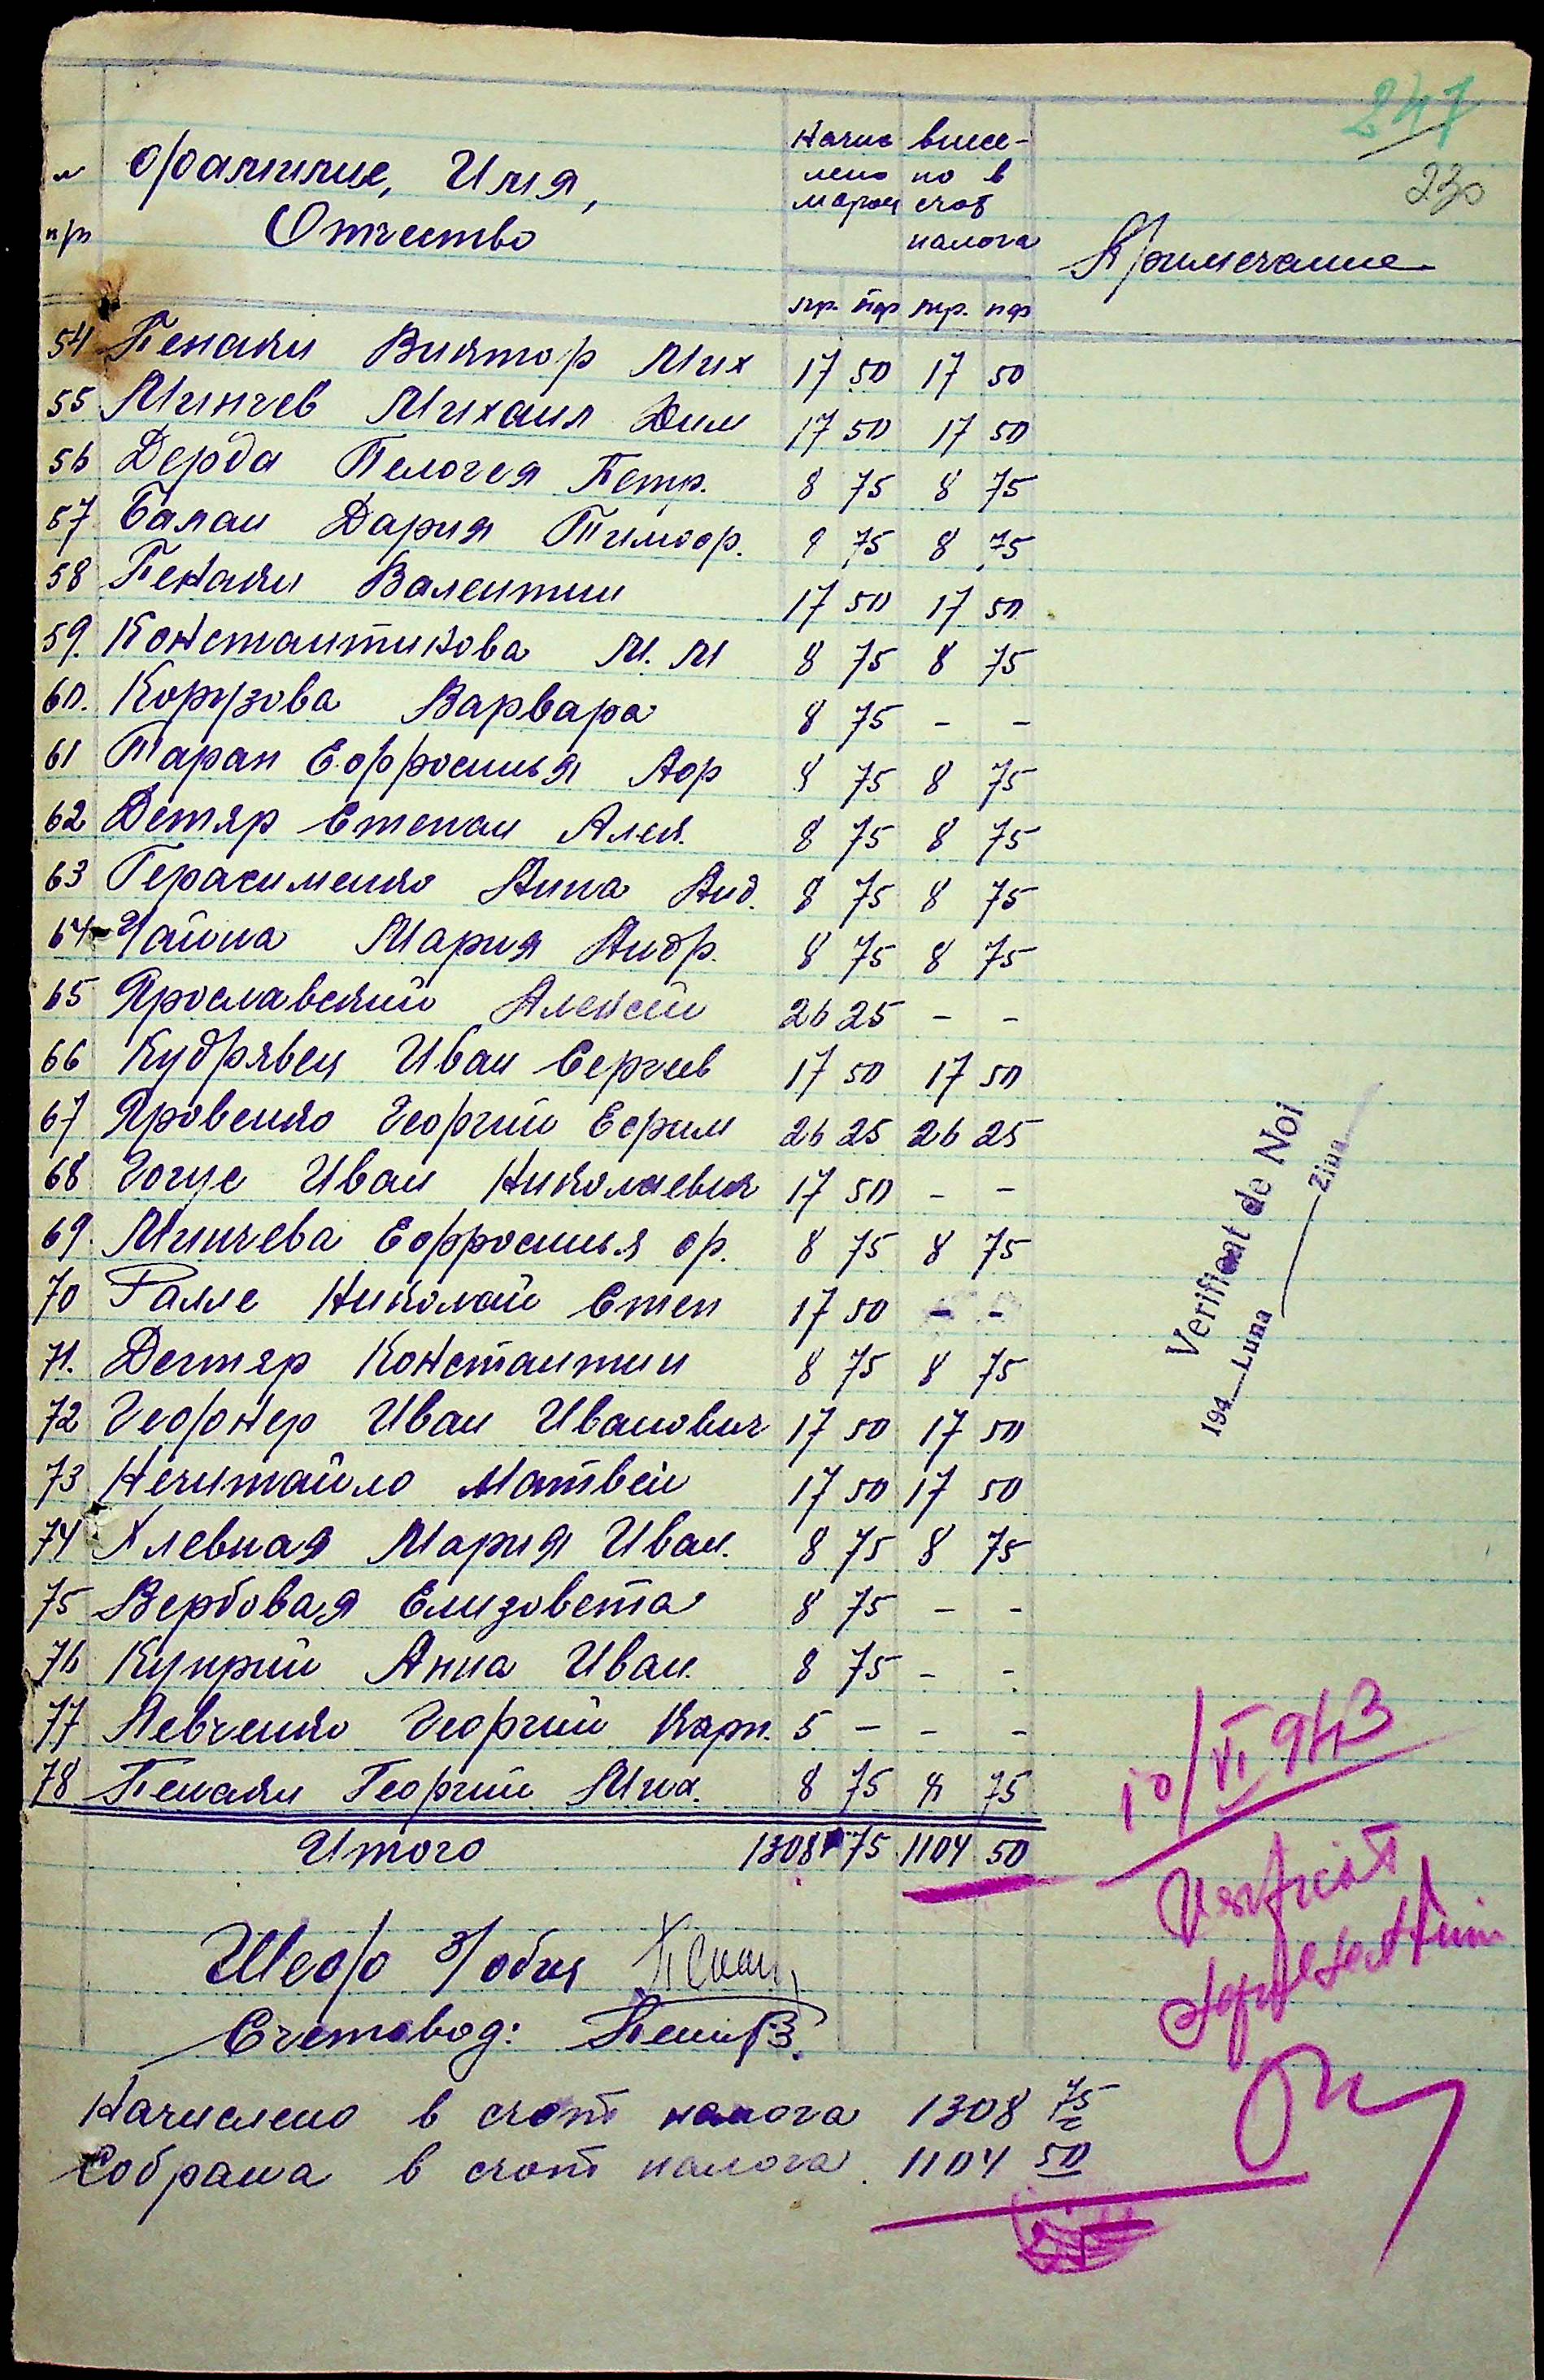 247
230
№ Фамилие, Имя, Начис внесе-
лено но в
п/п Отчество марок счот
налога Примечание
мр. пф мр. пф
54 Пенаки Виктор Мих 17 50 17 50
55 Минчев Михаил Дим 17 50 17 50
56 Дерда Пелогея Петр. 8 75 8 75
57 Балан Дария Тимоф. 8 75 8 75
58 Пенаки Валентин 17 50 17 50
59. Константинова М. М 8 75 8 75
60. Корузова Варвара 8 75 - -
61 Таран Еффросинья Аф 8 75 8 75
62 Детяр Степан Алек. 8 75 8 75
63 Герасименко Анна Анд. 8 75 8 75
64 Чайка Мария Андр. 8 75 8 75
65 Ярославский Алексей 26 25 - -
66 Кудрявец Иван Сергеев 17 50 17 50
67 Яровенко Георгий Ефим 26 25 26 25
68 Гогус Иван Николаевич 17 50 - -
69. Минчева Еффросинья ф. 8 75 8 75
70 Ралле Николай Степ 17 50 - -
71. Дегтяр Константин 8 75 8 75
72 Геофнер Иван Иванович 17 50 17 50
73 Нечитайло Матвей 17 50 17 50
74 Хлевная Мария Иван. 8 75 8 75
75 Вербовая Елизовета 8 75 - -
76 Куприй Анна Иван. 8 75 - -
77 Левченко Георгий Карп. 5 - - -
78 Пенаки Георгий Мих. 8 75 8 75
Итого 1308 75 1104 50
Verificat de Noi
194__Luna____Ziua
10/VI 943
Verificat
Шеф з/общ
Счетовод:
Начислено в счот налога 1308 75
Собрана в счот налога. 1104 50